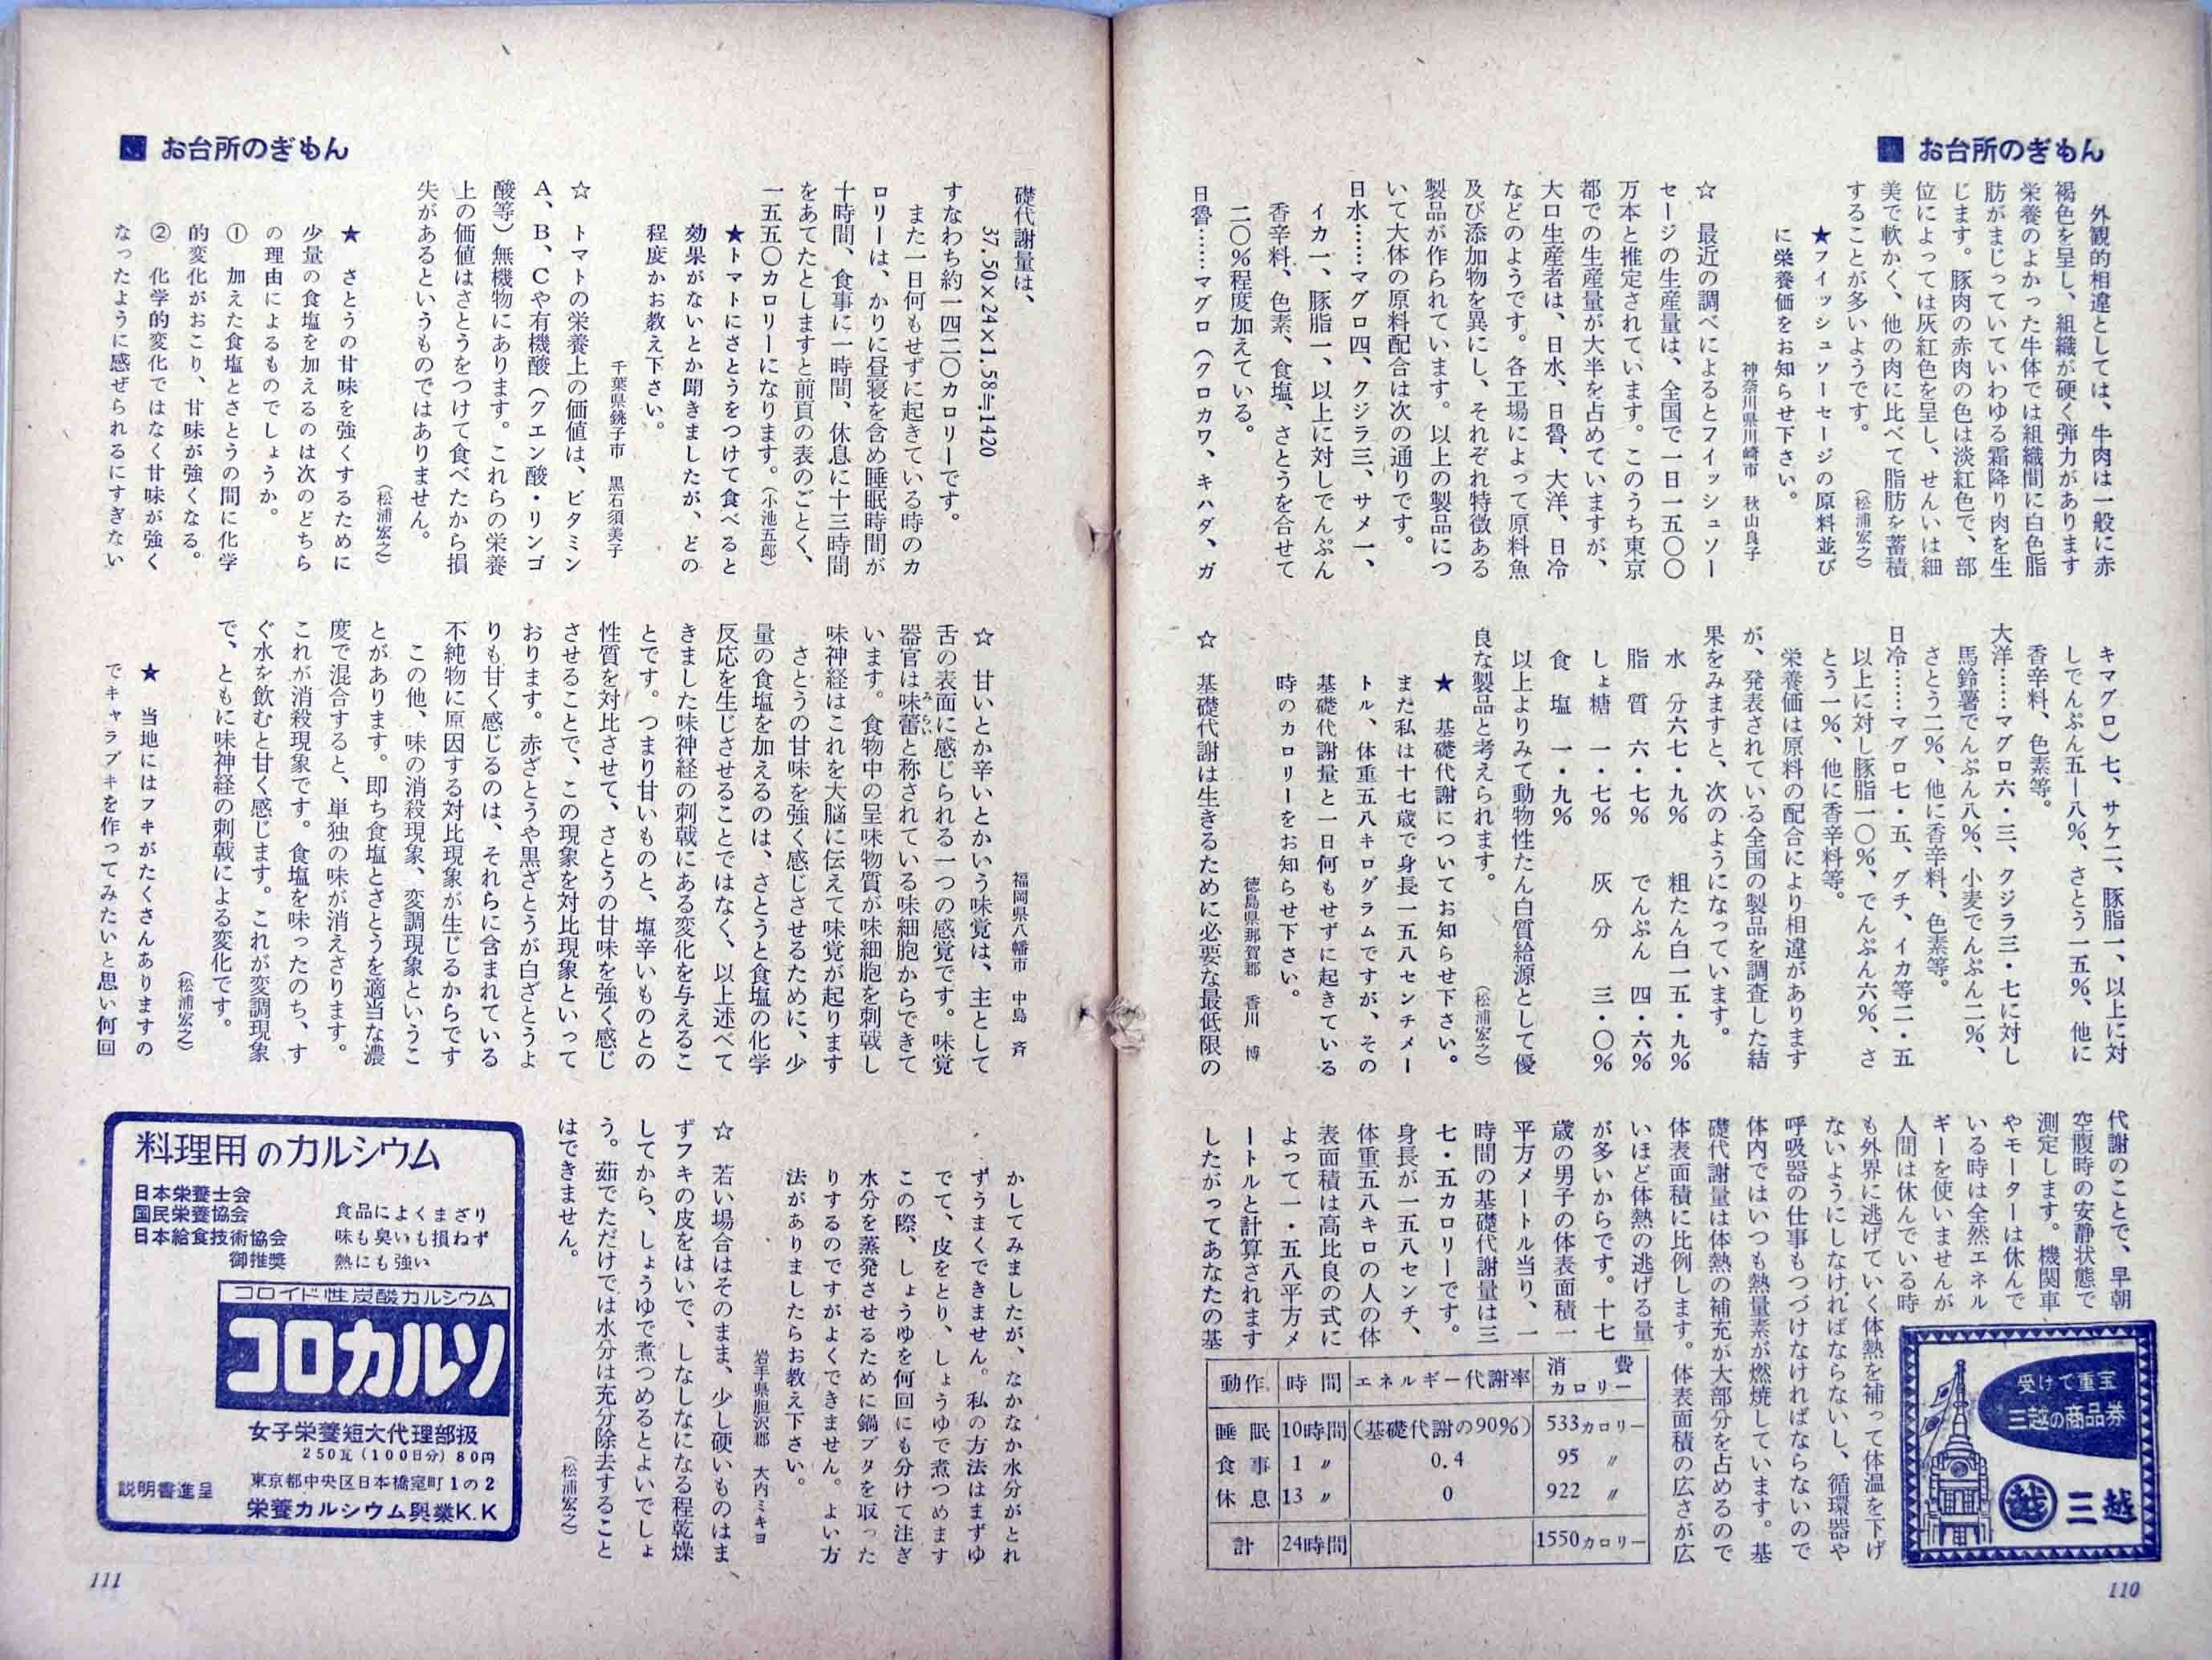 ■ お台所のぎもん
外観的相違としては、牛肉は一般に赤
褐色を呈し、組織が硬く弾力があります
栄養のよかった牛体では組織間に白色脂
肪がまじっていていわゆる霜降り肉を生
じます。豚肉の赤肉の色は淡紅色で、部
位によっては灰紅色を呈し、せんいは細
美で軟かく、他の肉に比べて脂肪を蓄積
することが多いようです。（松浦宏之）
★フィッシュソーセージの原料並び
に栄養価をお知らせ下さい。
神奈川県川崎市 秋山良子
☆ 最近の調べによるとフイッシュソー
セージの生産量は、全国で一日一五〇〇
万本と推定されています。このうち東京
都での生産量が大半を占めていますが、
大口生産者は、日水、日魯、大洋、日冷
などのようです。各工場によって原料魚
及び添加物を異にし、それぞれ特徴ある
製品が作られています。以上の製品につ
いて大体の原料配合は次の通りです。
日水……マグロ四、クジラ三、サメ一、
イカ一、豚脂一、以上に対しでんぷん
香辛料、色素、食塩、さとうを合せて
二〇％程度加えている。
日魯……マグロ（クロカワ、キハダ、ガ
キマグロ）七、サケ二、豚脂一、以上に対
しでんぷん五―八％、さとう一五％、他に
香辛料、色素等。
大洋……マグロ六・三、クジラ三・七に対し
馬鈴薯でんぷん八％、小麦でんぷん二％、
さとう二％、他に香辛料、色素等。
日冷……マグロ七・五、グチ、イカ等二・五
以上に対し豚脂一〇％、でんぷん六％、さ
とう一％、他に香辛料等。
栄養価は原料の配合により相違があります
が、発表されている全国の製品を調査した結
果をみますと、次のようになっています。
水 分六七・九％ 粗たん白一五・九％
脂 質 六・七％ でんぷん 四・六％
しょ糖 一・七％ 灰 分 三・〇％
食 塩 一・九％
以上よりみて動物性たん白質給源として優
良な製品と考えられます。（松浦宏之）
★ 基礎代謝についてお知らせ下さい。
また私は十七歳で身長一五八センチメー
トル、体重五八キログラムですが、その
基礎代謝量と一日何もせずに起きている
時のカロリーをお知らせ下さい。
徳島県那賀郡 香川 博
☆ 基礎代謝は生きるために必要な最低限の
代謝のことで、早朝
空腹時の安静状態で
測定します。機関車
やモーターは休んで
いる時は全然エネル
ギーを使いませんが
人間は休んでいる時
も外界に逃げていく体熱を補って体温を下げ
ないようにしなければならないし、循環器や
呼吸器の仕事もつづけなければならないので
体内ではいつも熱量素が燃焼しています。基
礎代謝量は体熱の補充が大部分を占めるので
体表面積に比例します。体表面積の広さが広
いほど体熱の逃げる量
が多いからです。十七
歳の男子の体表面積一
平方メートル当り、一
時間の基礎代謝量は三
七・五カロリーです。
身長が一五八センチ、
体重五八キロの人の体
表面積は高比良の式に
よって一・五八平方メ
ートルと計算されます
したがってあなたの基
動作 時間 エネルギー代謝率 消費カロリー
睡眠 10時間 (基礎代謝の90%) 533カロリー
食事 1 〃 0.4 95 〃
休息 13 〃 0 922 〃
計 24時間 1550カロリー
受けて重宝
三越の商品券
越 三越
110
■ お台所のぎもん
礎代謝量は、
37.50×24×1.58≒1420
すなわち約一四二〇カロリーです。
また一日何もせずに起きている時のカ
ロリーは、かりに昼寝を含め睡眠時間が
十時間、食事に一時間、休息に十三時間
をあてたとしますと前頁の表のごとく、
一五五〇カロリーになります。（小池五郎）
★トマトにさとうをつけて食べると
効果がないとか聞きましたが、どの
程度かお教え下さい。
千葉県銚子市 黒石須美子
☆ トマトの栄養上の価値は、ビタミン
A、B、Cや有機酸（クエン酸・リンゴ
酸等）無機物にあります。これらの栄養
上の価値はさとうをつけて食べたから損
失があるというものではありません。
（松浦宏之）
★ さとうの甘味を強くするために
少量の食塩を加えるのは次のどちら
の理由によるものでしょうか。
① 加えた食塩とさとうの間に化学
的変化がおこり、甘味が強くなる。
② 化学的変化ではなく甘味が強く
なったように感ぜられるにすぎない
福岡県八幡市 中島 斉
☆ 甘いとか辛いとかいう味覚は、主として
舌の表面に感じられる一つの感覚です。味覚
器官は味蕾と称されている味細胞からできて
みらい
います。食物中の呈味物質が味細胞を刺戟し
味神経はこれを大脳に伝えて味覚が起ります
さとうの甘味を強く感じさせるために、少
量の食塩を加えるのは、さとうと食塩の化学
反応を生じさせることではなく、以上述べて
きました味神経の刺戟にある変化を与えるこ
とです。つまり甘いものと、塩辛いものとの
性質を対比させて、さとうの甘味を強く感じ
させることで、この現象を対比現象といって
おります。赤ざとうや黒ざとうが白ざとうよ
りも甘く感じるのは、それらに含まれている
不純物に原因する対比現象が生じるからです
この他、味の消殺現象、変調現象というこ
とがあります。即ち食塩とさとうを適当な濃
度で混合すると、単独の味が消えさります。
これが消殺現象です。食塩を味ったのち、す
ぐ水を飲むと甘く感じます。これが変調現象
で、ともに味神経の刺戟による変化です。
（松浦宏之）
★ 当地にはフキがたくさんありますの
でキャラブキを作ってみたいと思い何回
かしてみましたが、なかなか水分がとれ
ずうまくできません。私の方法はまずゆ
でて、皮をとり、しょうゆで煮つめます
この際、しょうゆを何回にも分けて注ぎ
水分を蒸発させるために鍋ブタを取った
りするのですがよくできません。よい方
法がありましたらお教え下さい。
岩手県胆沢郡 大内ミキヨ
☆ 若い場合はそのまま、少し硬いものはま
ずフキの皮をはいで、しなしなになる程乾燥
してから、しょうゆで煮つめるとよいでしょ
う。茹でただけでは水分は充分除去すること
はできません。（松浦宏之）
料理用のカルシウム
日本栄養士会
国民栄養協会
日本給食技術協会
御推奨
食品によくまざり
味も臭いも損ねず
熱にも強い
コロイド性炭酸カルシウム
コロカルソ
女子栄養短大代理部扱
250瓦(100日分)80円
東京都中央区日本橋室町1の2
説明書進呈
栄養カルシウム興業K.K
111